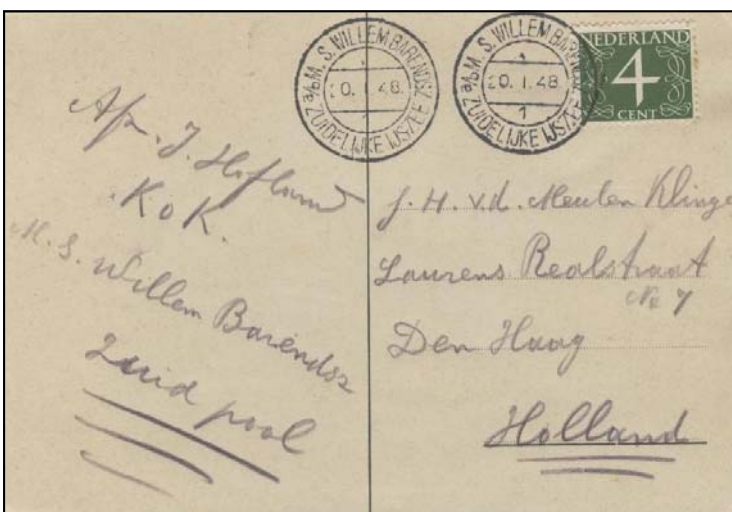 a/b M. S. WILLEM BARENDSZ
20. 1. 48
1
ZUIDELIJKE IJSZEE
a/b M. S. WILLEM BARENDSZ
20. 1. 48
1
ZUIDELIJKE IJSZEE
NEDERLAND
4
CENT
Afz. J. Hofland
Kok.
M. S. Willem Barendsz
Zuid pool
J. H. v.d. Meulen Klinge
Laurens Realstraat
No 7
Den Haag
Holland